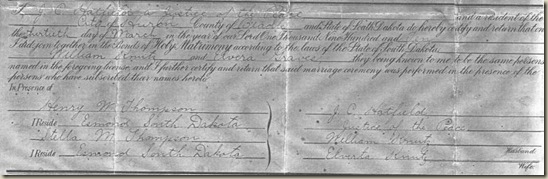 I, J. C. Hatfield a Justice of the Peace and a resident of
City of Huron County of Beadle and State of South Dakota do hereby certify and return that on
the thirtieth day of March in the year of our Lord One Thousand Nine Hundred and
I did join together in the Bonds of Holy Matrimony according to the laws of the State of South Dakota,
William and Elvera they being known to me to be the same persons
named in the foregoing license and I further certify and return that said marriage ceremony was performed in the presence of the
persons who have subscribed their names hereto
In Presence of
Henry W. Thompson
J. C. Hatfield
Resides Esmond South Dakota
Justice of the Peace
Stella M. Thompson
William
Husband
Resides Esmond South Dakota
Wife